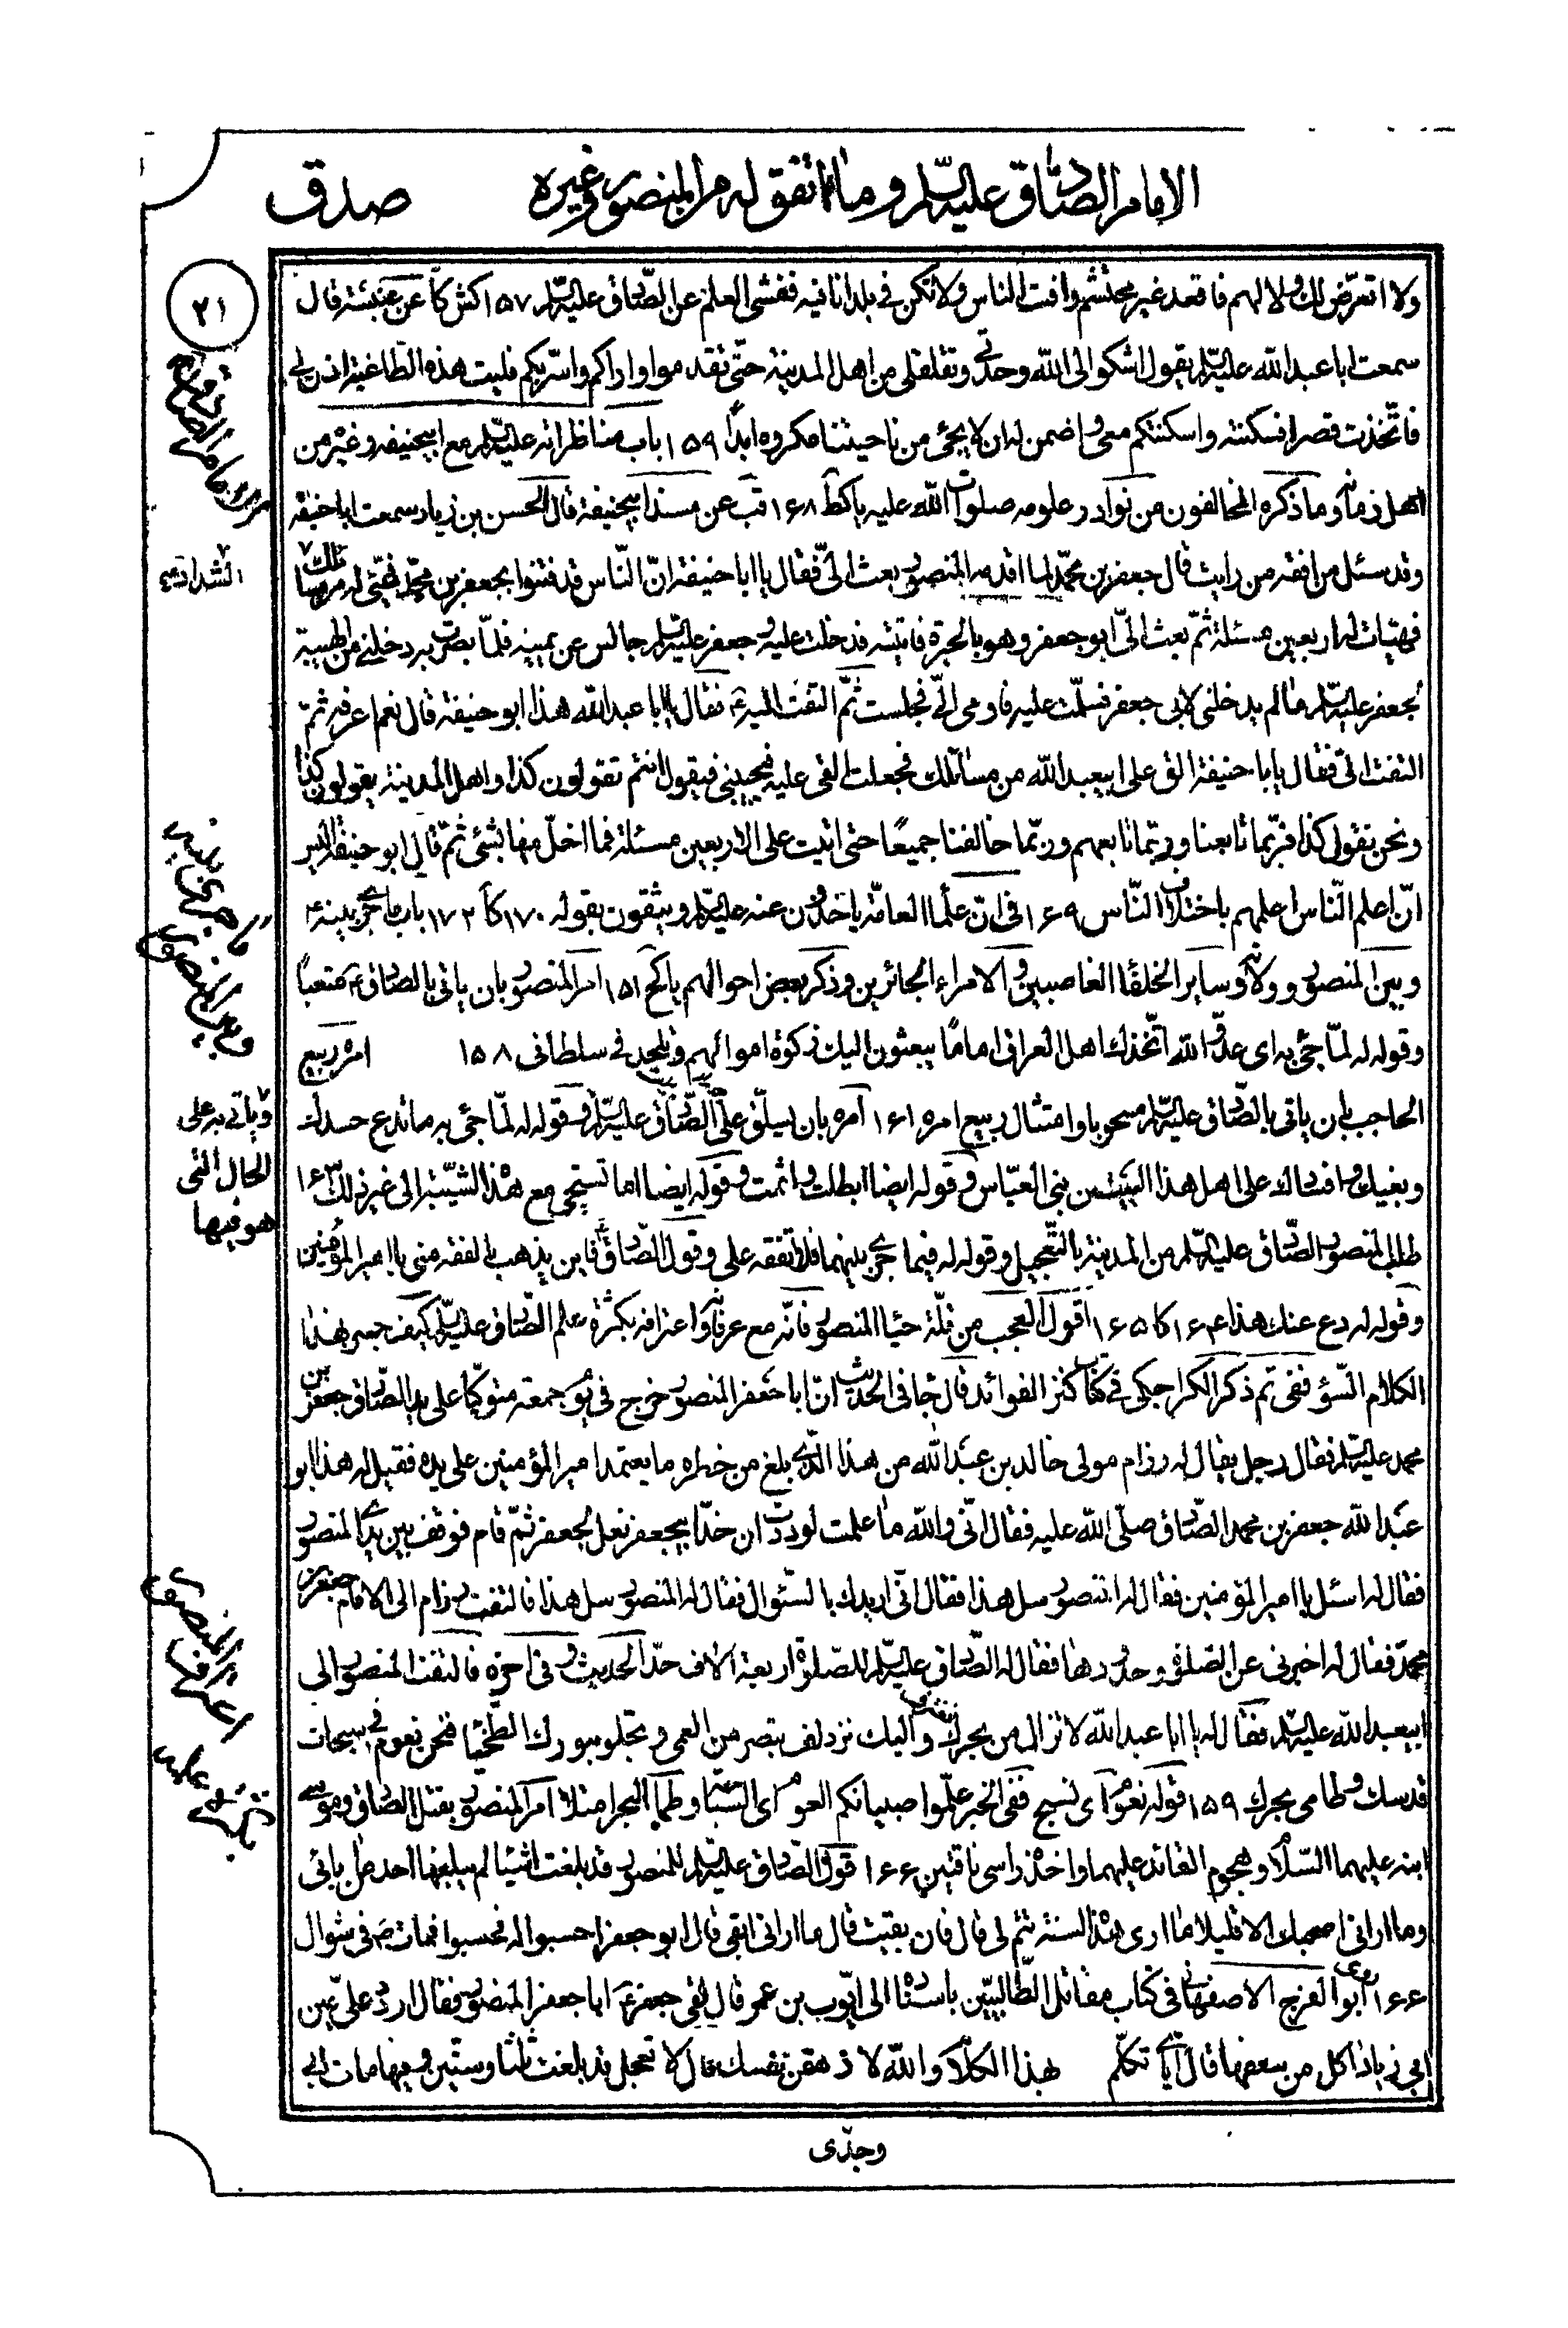 الإمام الصادق عليه السلام وما اتفق له من المنصور وغيره
صدق
٢١
ولا اتعرّض لك ولا لهم فاقعد غير محتشم وافت الناس ولا تكن في بلد انا فيه ففشى العلم عن الصّادق عليه السّلم ١٥٧ كش كا عن عنبسة قال
سمعت ابا عبد الله عليه السّلم يقول اشكو الى الله وحدتي وتقلقلي من اهل المدينة حتّى تقدموا واراكم واسرّ بكم فليت هذه الطّاغية اذن لي
فاتّخذت قصرا فسكنته واسكنتكم معي واضمن له ان لا يجئ من ناحيتنا مكروه ابدًا ١٥٩ باب مناظراته عليه السّلم مع ابيحنيفه وغيره من
اهل زمانه وما ذكره المخالفون من نوادر علومه صلوات الله عليه ياكط ١٦٨ قب عن مسند ابيحنيفة قال الحسن بن زياد سمعت ابا حنيفه
وقد سئل من افقه من رايت قال جعفر بن محمّد لما اقدمه المنصور بعث الىّ فقال يا ابا حنيفة انّ النّاس قد فتنوا بجعفر بن محمّد فهيّئ له من مسائلك
فهيّات له اربعين مسئلة ثمّ بعث الىّ ابو جعفر وهو بالحيرة فاتيته فدخلت عليه وجعفر عليه السّلم جالس عن يمينه فلمّا بصرت به دخلني من الهيبة
لجعفر عليه السّلم ما لم يدخلني لابى جعفر فسلّمت عليه فاومى الىّ فجلست ثمّ التفت اليه ع فقال يا ابا عبد الله هذا ابو حنيفة قال نعم اعرفه ثمّ
التفت الىّ فقال يا با حنيفة الق على ابيعبد الله من مسائلك فجعلت القى عليه فيجيبني فيقول انتم تقولون كذا واهل المدينة يقولون كذا
ونحن نقول كذا فربّما تابعنا وربّما تابعهم وربّما خالفنا جميعًا حتى اتيت على الاربعين مسئلة فما اخلّ منها بشئى ثمّ قال ابو حنيفة اليس
انّ اعلم النّاس اعلمهم باختلاف النّاس ١٦٩ في انّ علما العامّة ياخذون عنه عليه السّلم ويثقون بقوله ١٧٠ كا ١٧٢ باب ما جرى بينه ع
وبين المنصور وولاته وساير الخلفا الغاصبين والامراء الجائرين وذكر بعض احوالهم ياكح ١٥١ امر المنصور بان ياتى بالصّادق ع متعبًا
وقوله له لمّا جئ به اى عدوّ الله اتّخذك اهل العراق امامًا يبعثون اليك زكوة اموالهم وتلحد في سلطانى ١٥٨ امره ربيع
الحاجب بان ياتى بالصّادق عليه السّلم مسحوبا وامتثال ربيع امره ١٦١ امره بان يسلّق على الصّادق عليه السّلم وقوله له لمّا جئ به ما تدع حسدك
وبغيك وافسادك على اهل هذا البيت من بنى العبّاس وقوله ايضا ابطلت واثمت وقوله ايضا اما تستحى مع هذه الشّيبة الى غير ذلك ١٦٣
طلب المنصور الصّادق عليه السّلم من المدينة بالتّعجيل وقوله له فيما جرى بينهما فلا تفقه علي وقول الصّادق ع فاين يذهب بالفقه منى يا امير المؤمنين
وقوله له دع عنك هذا ١٦٤ كا ١٦٥ اقول العجب من قلّة حيا المنصور فانّه مع عرفانه واعترافه بكثرة علم الصّادق عليه السّلم كيف جسر بهذا
الكلام السّوء ففى ثم ذكر الكراجكى في كتاب كنز الفوائد قال جا في الحديث انّ ابا جعفر المنصور خرج في يوم جمعة متوكّيا على يد الصّادق جعفر بن
محمد عليه السّلم فقال رجل يقال له رزام مولى خالد بن عبد الله من هذا الّذى بلغ من خطره ما يعتمد امير المؤمنين على يده فقيل له هذا ابو
عبد الله جعفر بن محمد الصّادق صلّى الله عليه فقال انّى والله ما علمت لوددت ان خدّ ابيجعفر نعل لجعفر ثمّ قام فوقف بين يدى المنصور
فقال له اسئل يا امير المؤمنين فقال له المنصور سل هذا فقال انّى اريدك بالسّئوال فقال له المنصور سل هذا فالتفت رزام الى الامام جعفر بن
محمّد فقال له اخبرنى عن الصّلوة وحدودها فقال له الصّادق عليه السّلم للصّلوة اربعة الاف حدّ الحديث وفى اخره فالتفت المنصور الى
ابيعبد الله عليه السّلم فقال له يا ابا عبد الله لا نزال من بحرك نغترف واليك نزدلف تبصر من العمى وتجلو بنورك الطّخيا فنحن نعوم في سبحات
قدسك وطامى بحرك ١٥٩ قوله نعوم اى نسبح ففى الخبر علّموا صبيانكم العوم اى السّباحة وطما البحر امتلا امر المنصور بقتل الصّادق وموسى
ابنه عليهما السّلام وهجوم القائد عليهما واخذ راسى ناقتين ١٦٦ قول الصّادق عليه السّلم للمنصور قد بلغت اشيا لم يبلغها احد من ابائى
وما ارانى اصحبك الا قليلا ما ارى هذه السنة تتم لى قال فان بقيت قال ما ارانى ابقى قال ابو جعفر احسبوا له فحسبوا فمات ع فى شوال
١٦٦ روى ابو الفرج الاصفهانى فى كتاب مقاتل الطّالبيّين باسناده الى ايّوب بن عمر قال لقى جعفر ع ابا جعفر المنصور فقال اردد علىّ عين
ابى زياد اكل من سعفها قال ايّاى تكلّم بهذا الكلام والله لا زهقن نفسك قال لا تعجل قد بلغت ثلثا وستّين وفيها مات ابى
وجدّى
الشدائد
وياتى به على
الحال التى
هو فيها
ما جرى بينه
وبين المنصور
اعتراف المنصور
بكثرة علمه